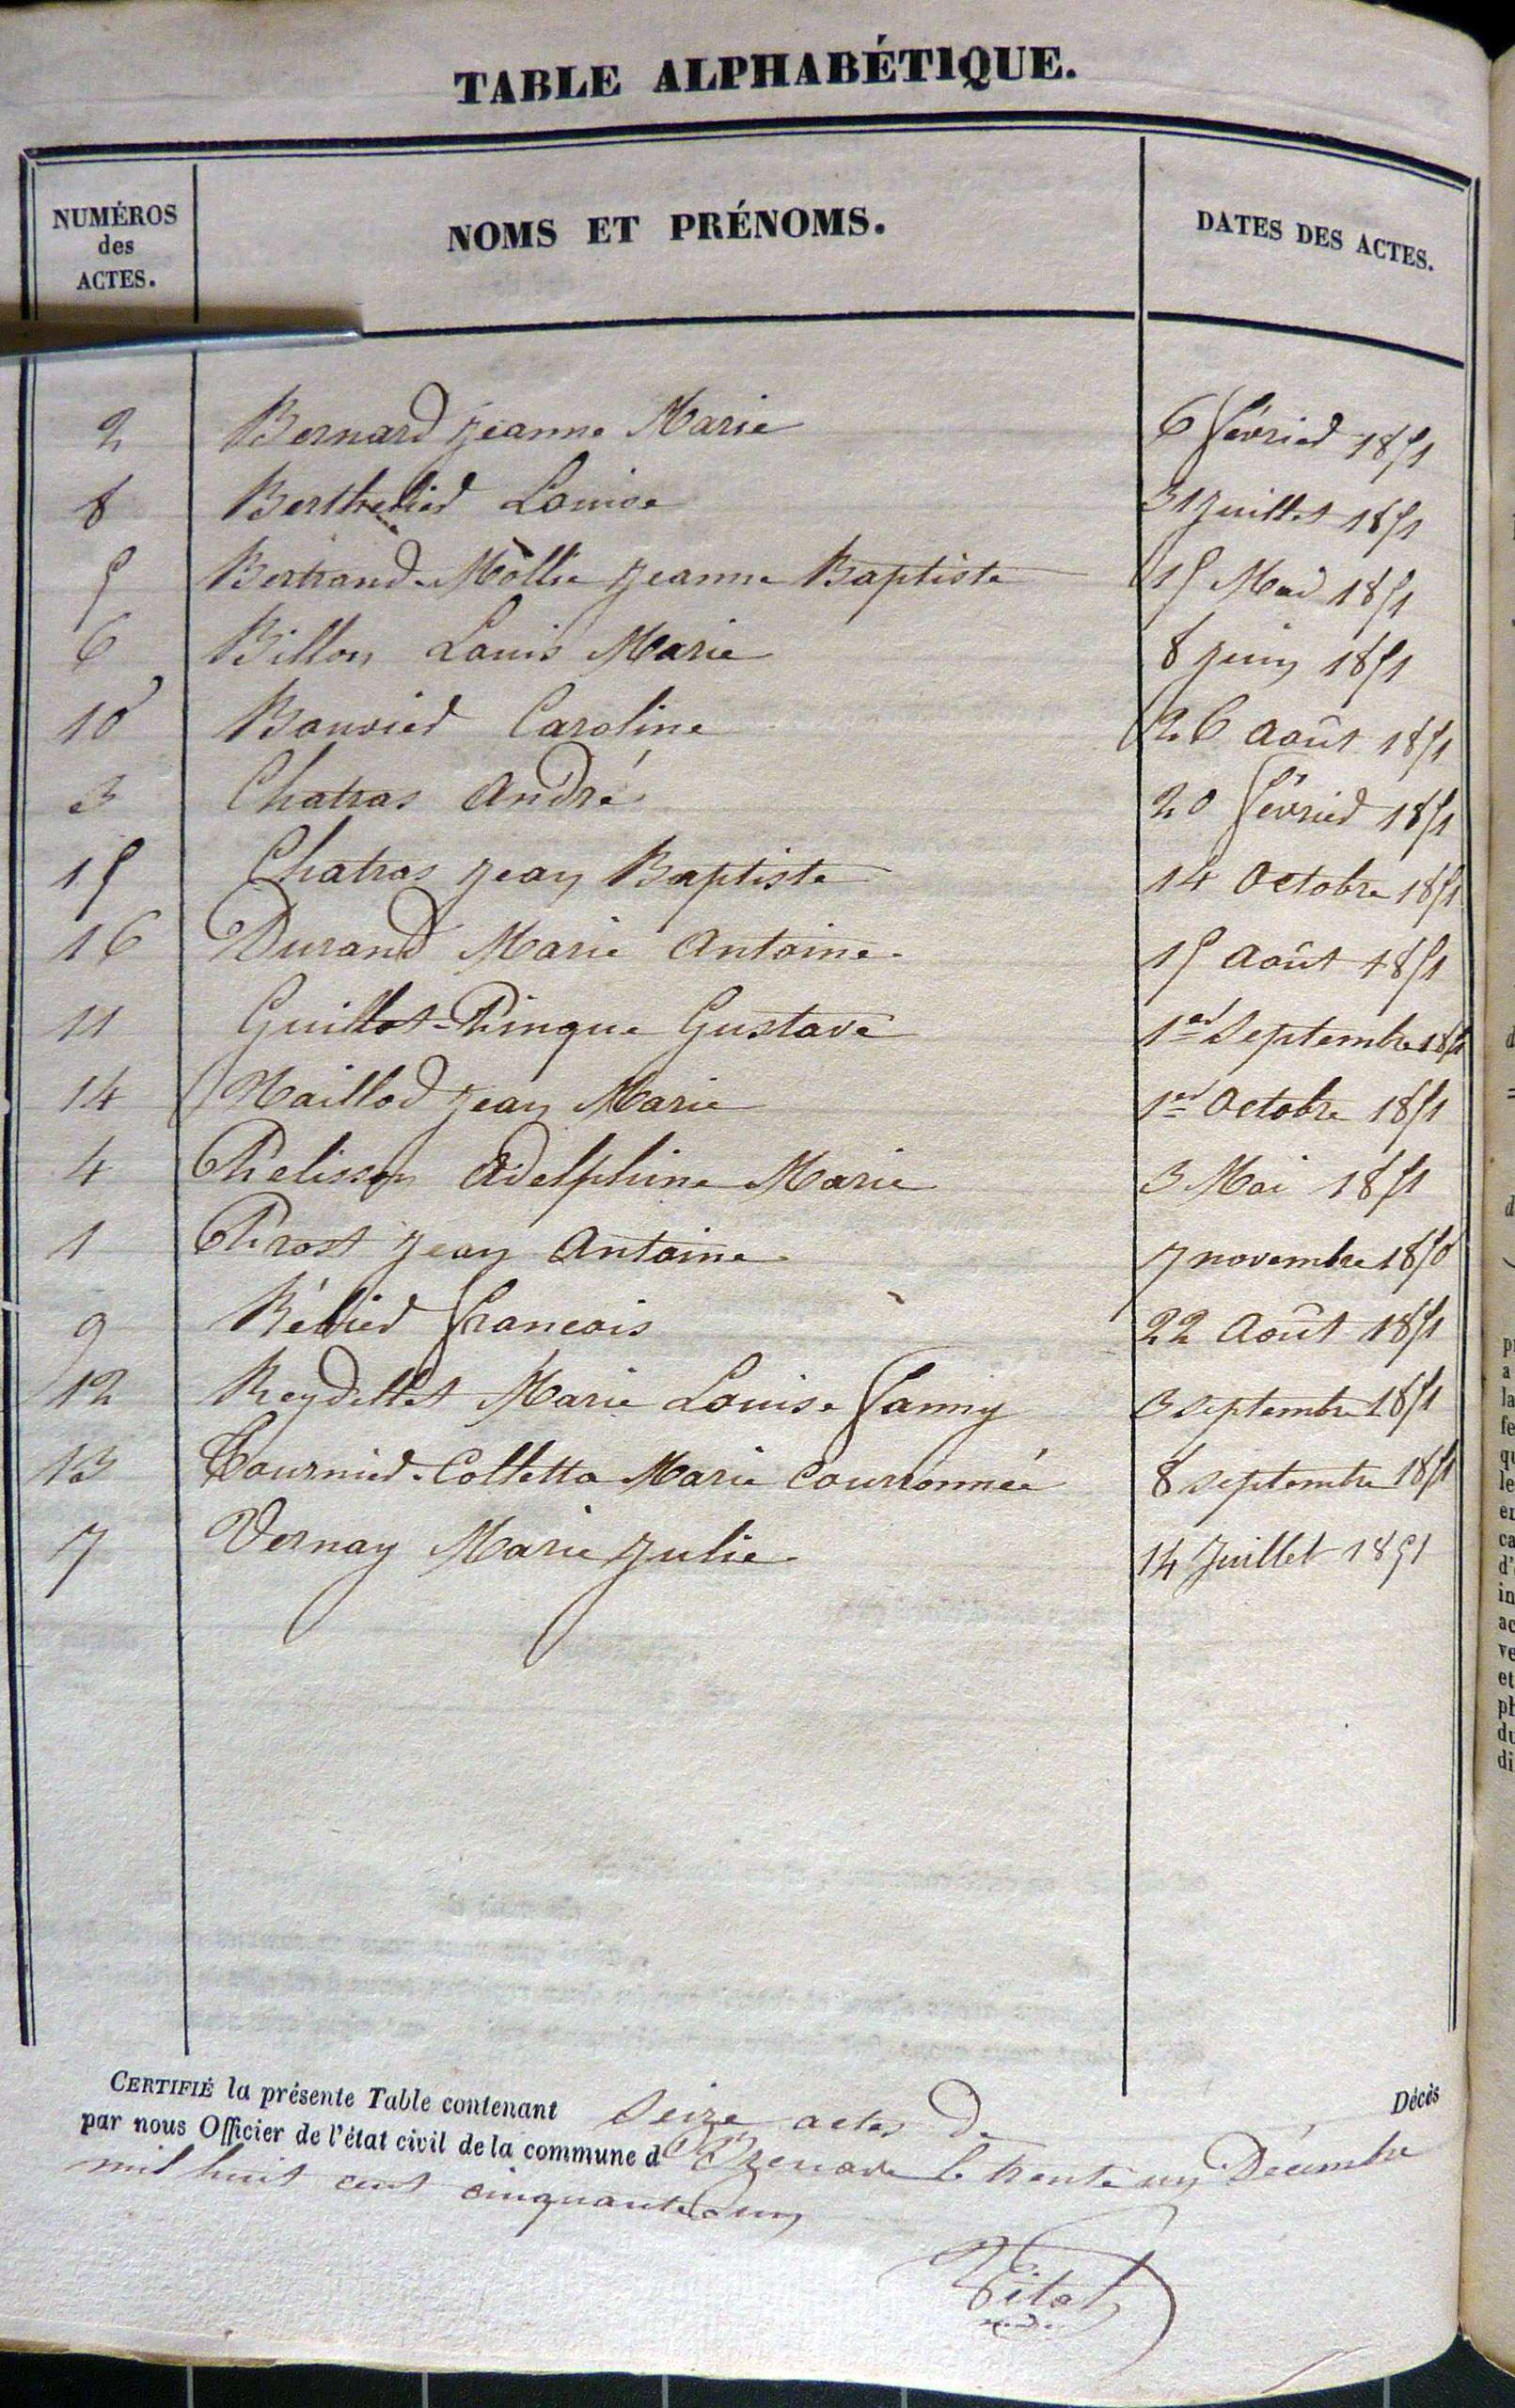 TABLE ALPHABÉTIQUE.
NUMÉROS des ACTES. NOMS ET PRÉNOMS. DATES DES ACTES.
2 Bernard Jeanne Marie 6 février 1851
8 Berthelier Louise 31 Juillet 1851
5 Bertrand-Mollie Jeanne Baptiste 15 Mai 1851
6 Billon Louis Marie 8 Juin 1851
10 Bouvier Caroline 26 Août 1851
3 Chatras André 20 février 1851
15 Chatras Jean Baptiste 14 Octobre 1851
16 Durand Marie Antoine 15 Août 1851
11 Guillot-Pingue Gustave 1er Septembre 1851
14 Maillod Jean Marie 1er Octobre 1851
4 Pelisson Adelphine Marie 3 Mai 1851
1 Prost Jean Antoine 7 novembre 1850
9 François 22 Août 1851
12 Reydellet Marie Louise Fanny 3 septembre 1851
13 Tournier-Colletta Marie Couronnée 8 septembre 1851
7 Vernay Marie Julie 14 Juillet 1851
CERTIFIÉ la présente Table contenant Seize actes de Décès
par nous Officier de l'état civil de la commune d le trente un Décembre
mil huit cent cinquante un